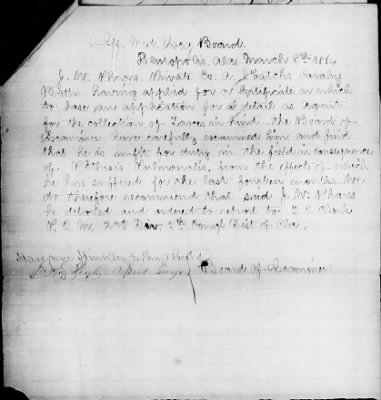 Off. Med. Exg. Board.
Demopolis, Ala. March 8th 1864
J. W. Phares Private Co. A, Hatchs Cavalry
Battn having applied for a Certificate on which
to base an application for a detail as Agent
for the collection of Taxes in Kind. The Board of
Examiners have carefully examined him and find
that he is unfit for duty in the field in consequence
of Pthisis Pulmonalis, from the effects of which
he has suffered for the last fourteen months. We
do therefore recommend that said J. W. Phares
be detailed and ordered to report to
Q. M. 2nd Cong Dist of Ala.
Board of Examiners